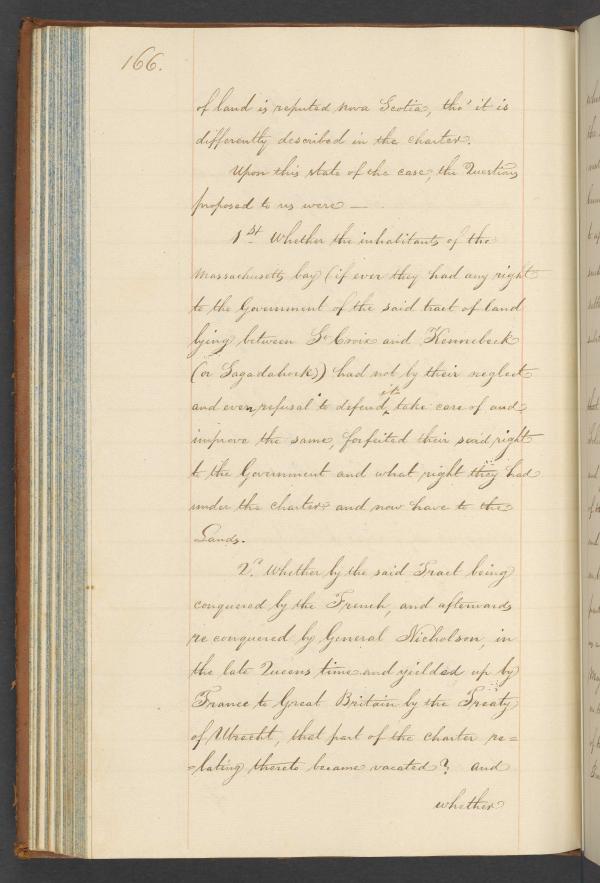 166.
of land is reputed nova Scotia, tho' it is
differently described in the charter.
Upon this state of the case, the Questions
proposed to us were —
1st Whether the inhabitants of the
Massachusetts bay (if ever they had any right
to the Government of the said tract of land
lying between St Croix and Kennebeck
(or Sagadahock)) had not by their neglect
and even refusal to defend it, take care of and
improve the same, forfeited their said right
to the Government and what right they had
under the charter and now have to the
Lands.
2d. Whether by the said Tract being
conquered by the French, and afterwards
re conquered by General Nicholson, in
the late Queens time and yielded up by
France to Great Britain by the Treaty
of Utrecht, that part of the charter re=
=lating thereto became vacated? and
whether